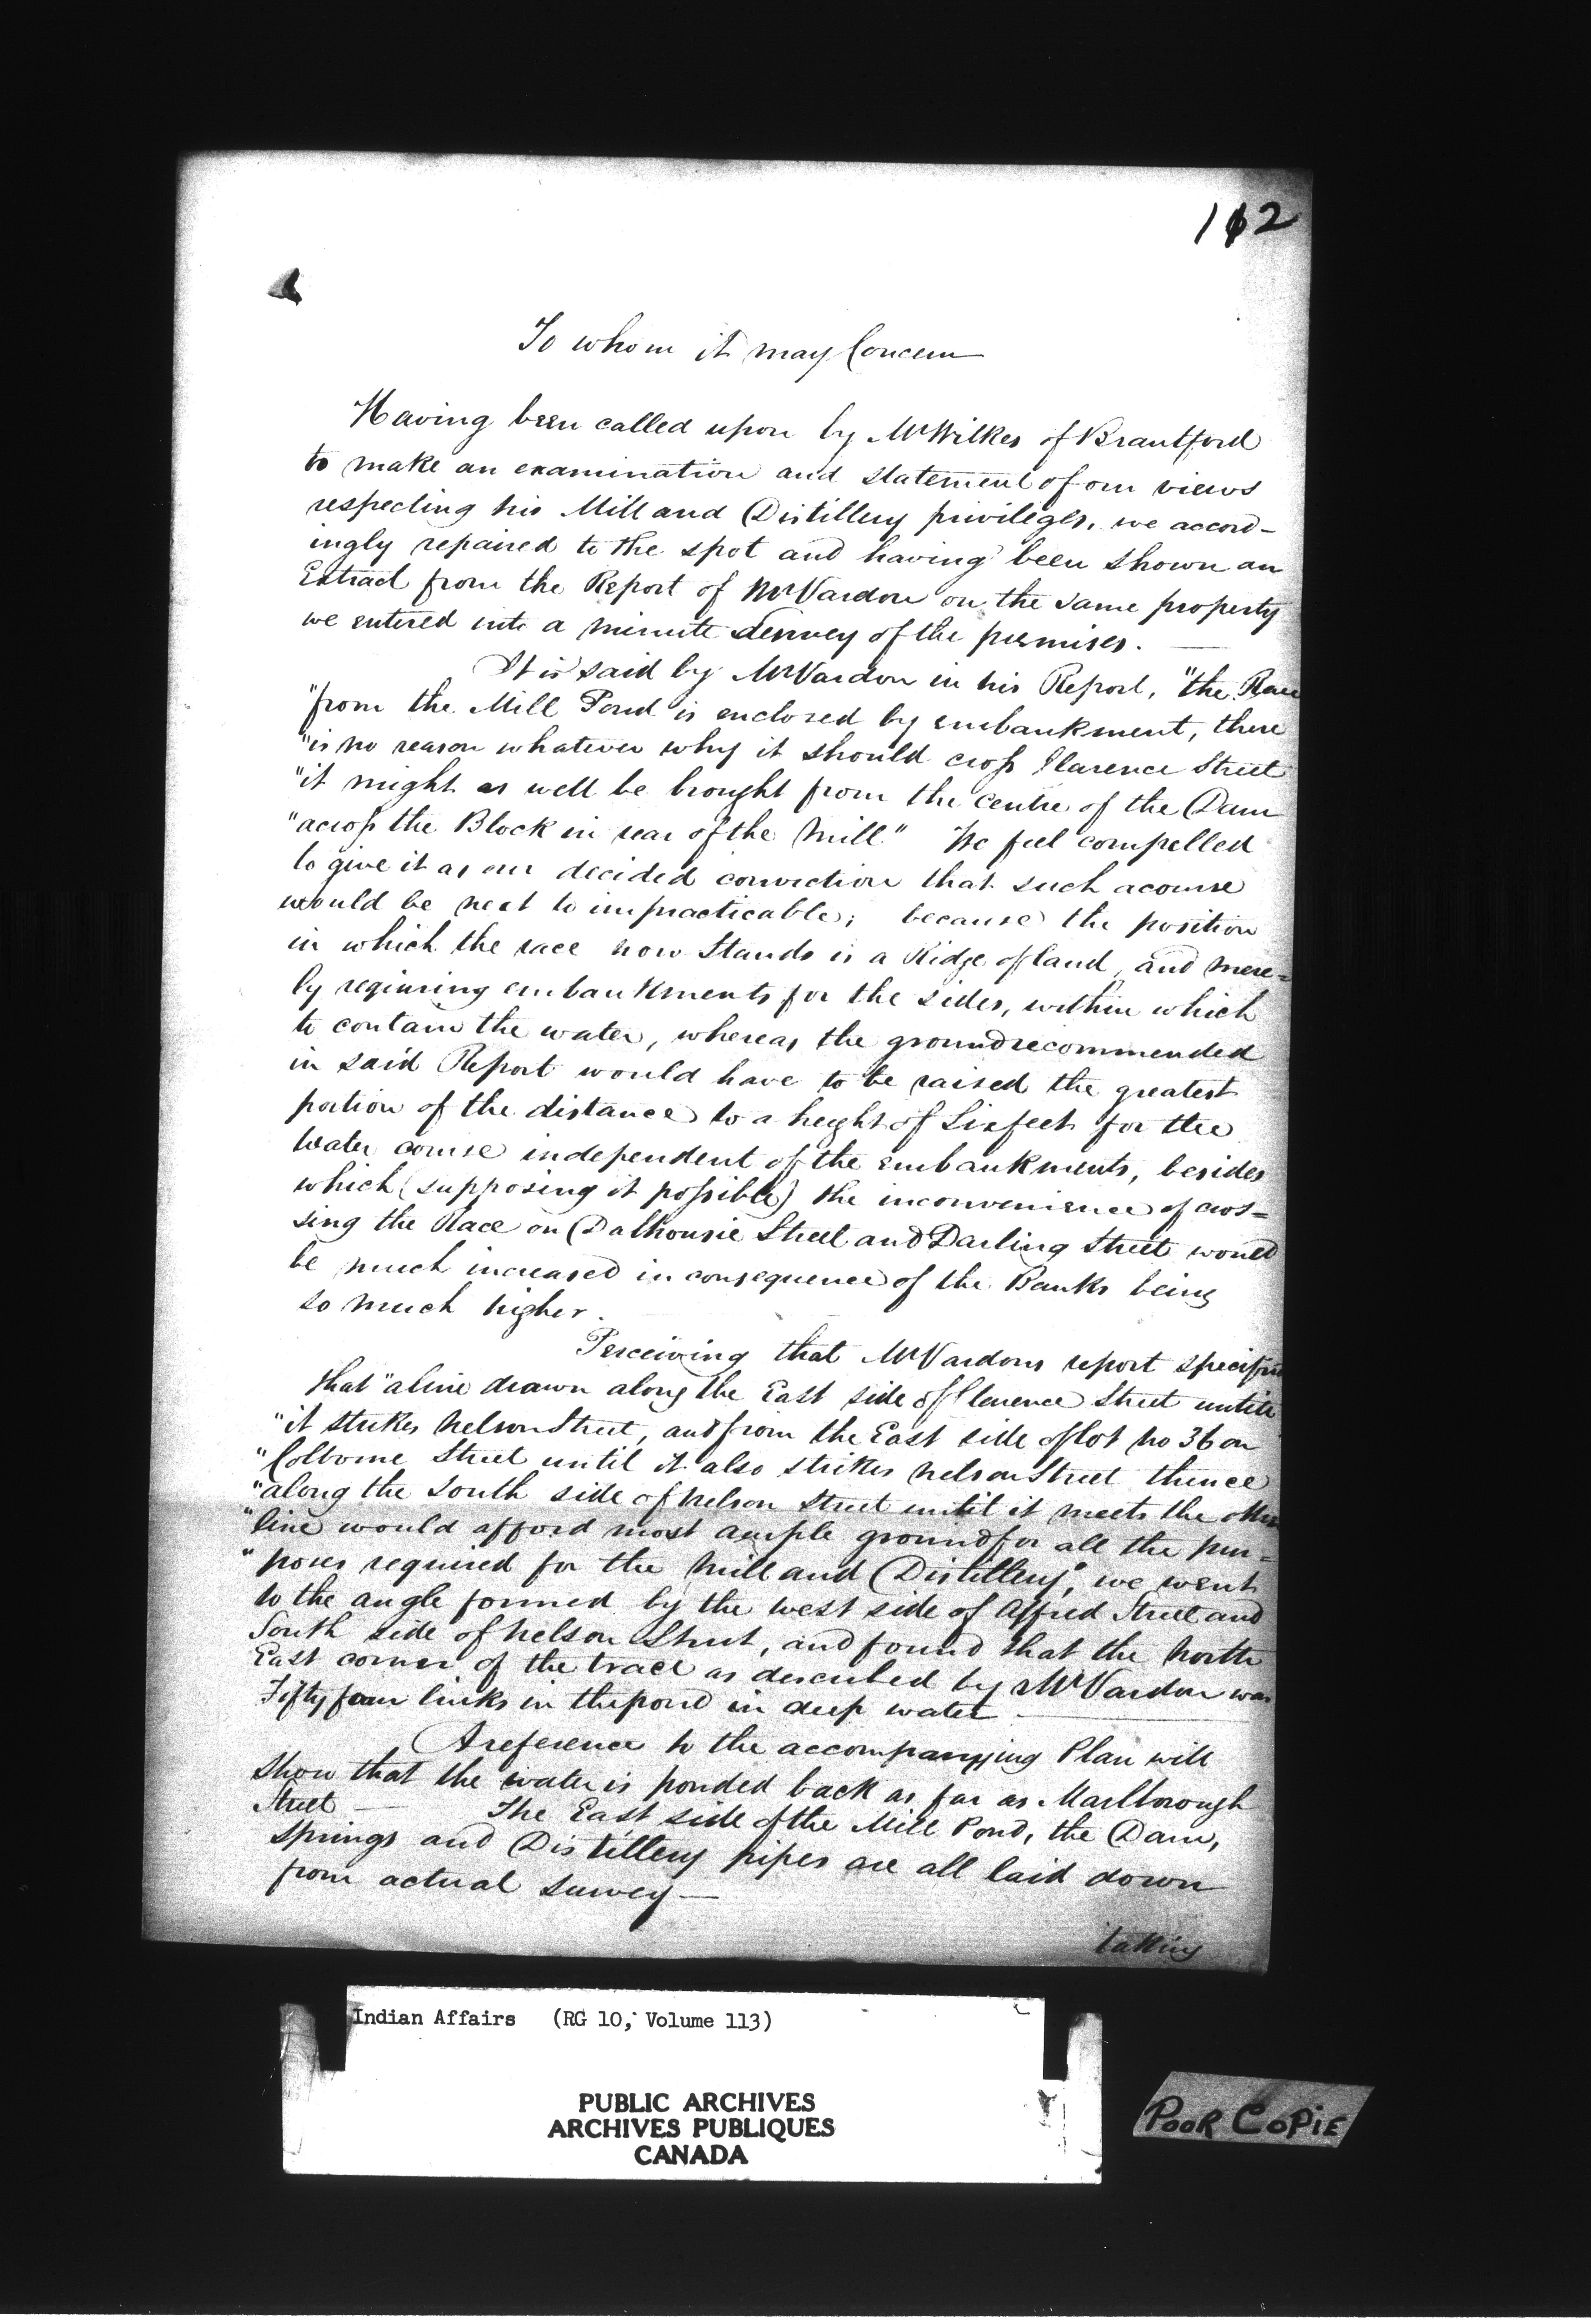 112
To whom it may Concern
Having been called upon by Mr Wilkes of Brantford
to make an examination and statement of our views
respecting his Mill and Distillery privileges, we accord-
ingly repaired to the spot and having been shown an
Extract from the Report of Mr Vardon on the same property
we entered into a minute Survey of the premises.
It is said by Mr Vardon in his Report, "the Race
"from the Mill Pond is enclosed by embankment, there
"is no reason whatever why it should cross Clarence Street
"it might as well be brought from the centre of the Dam
"across the Block in rear of the Mill" We feel compelled
to give it as our decided conviction that such a course
would be next to impracticable; because the position
in which the race now Stands is a Ridge of land, and mere=
ly requiring embankments for the sides, within which
to contain the water, whereas the ground recommended
in said Report would have to be raised the greatest
portion of the distance to a height of Six feet for the
Water course independent of the embankments, besides
which (supposing it possible) the inconvenience of cros=
sing the Race on Dalhousie Street and Darling Street would
be much increased in consequence of the Banks being
so much higher.
Perceiving that Mr Vardons report specifies
that "a line drawn along the East side of Clarence Street until
"it strikes Nelson Street, and from the East side of lot No 36 on
"Colborne Street until it also strikes Nelson Street thence
"along the South side of Nelson Street until it meets the other
"line would afford most ample ground for all the pur=
"poses required for the Mill and Distillery", we went
to the angle formed by the west side of Alfred Street and
South side of Nelson Street, and found that the North
East corner of the tract as described by Mr Vardon was
Fifty four links in the pond in deep water
A reference to the accompanying Plan will
Show that the water is ponded back as far as Marlborough
Street — The East side of the Mill Pond, the Dam,
Springs and Distillery pipes are all laid down
from actual Survey —
taking
Indian Affairs (RG 10, Volume 113)
PUBLIC ARCHIVES
ARCHIVES PUBLIQUES
CANADA
POOR COPIE